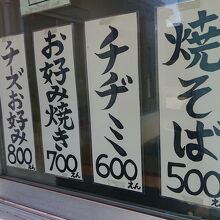 焼そば
500えん
チヂミ
600えん
お好み焼き
700えん
チーズお好み
800えん